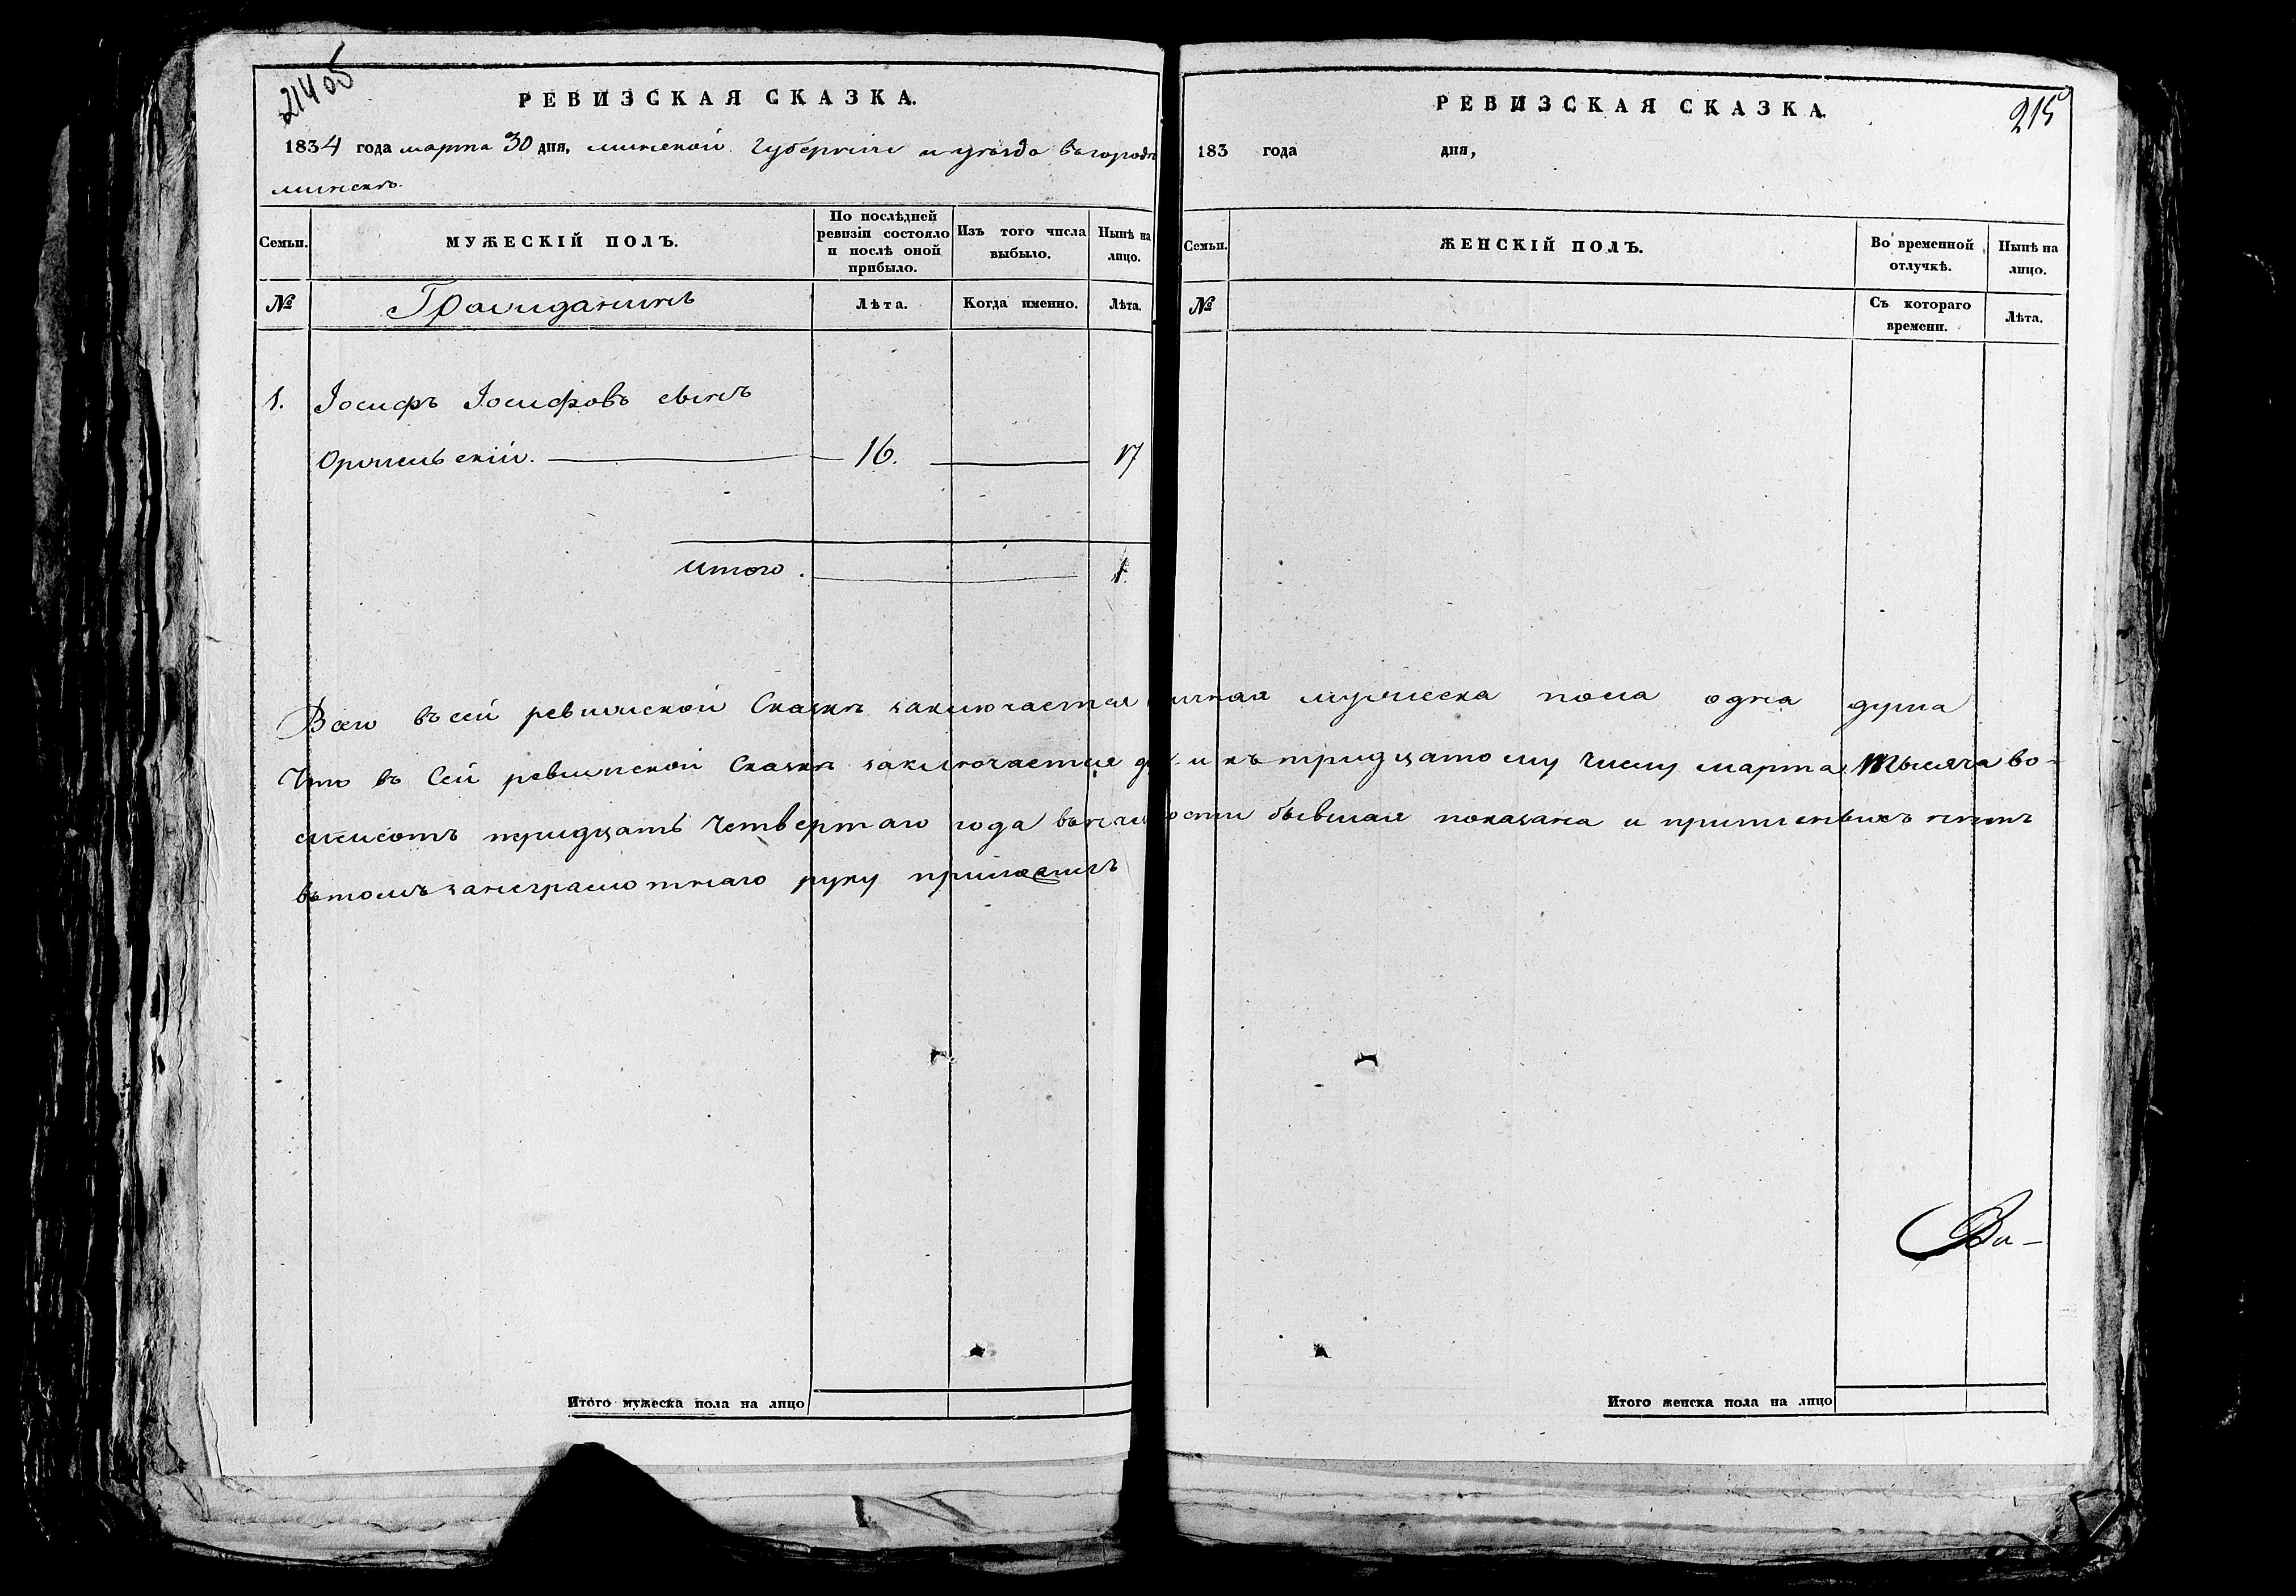 21405
РЕВИЗСКАЯ СКАЗКА.
1834 года марта 30 дня, минской губернии и уезда въ городѣ
минскѣ.
Семьи.
МУЖЕСКІЙ ПОЛЪ.
По послѣдней
ревизіи состояло
и послѣ оной
прибыло.
Изъ того числа
выбыло.
Нынѣ на
лицо.
№
Гражданинъ
Лѣта.
Когда именно.
Лѣта.
1. Іосифъ Іосифовъ сынъ
16. 17
итого. 1
Итого мужеска пола на лицо
215
РЕВИЗСКАЯ СКАЗКА.
183 года дня,
Семьи.
ЖЕНСКІЙ ПОЛЪ.
Во временной
отлучкѣ.
Нынѣ на
лицо.
№
Съ котораго
времени.
Лѣта.
Всего въ сей ревизской Сказкѣ заключается личная мужеска пола одна душа
Что въ Сей ревизской Сказкѣ заключается и къ тридцатому числу марта тысяча во-
семисотъ тридцать четвертаго года въ наличности бывшая показана и нетъ
въ томъ за неграмотнаго руку приложилъ
Ва-
Итого женска пола на лицо